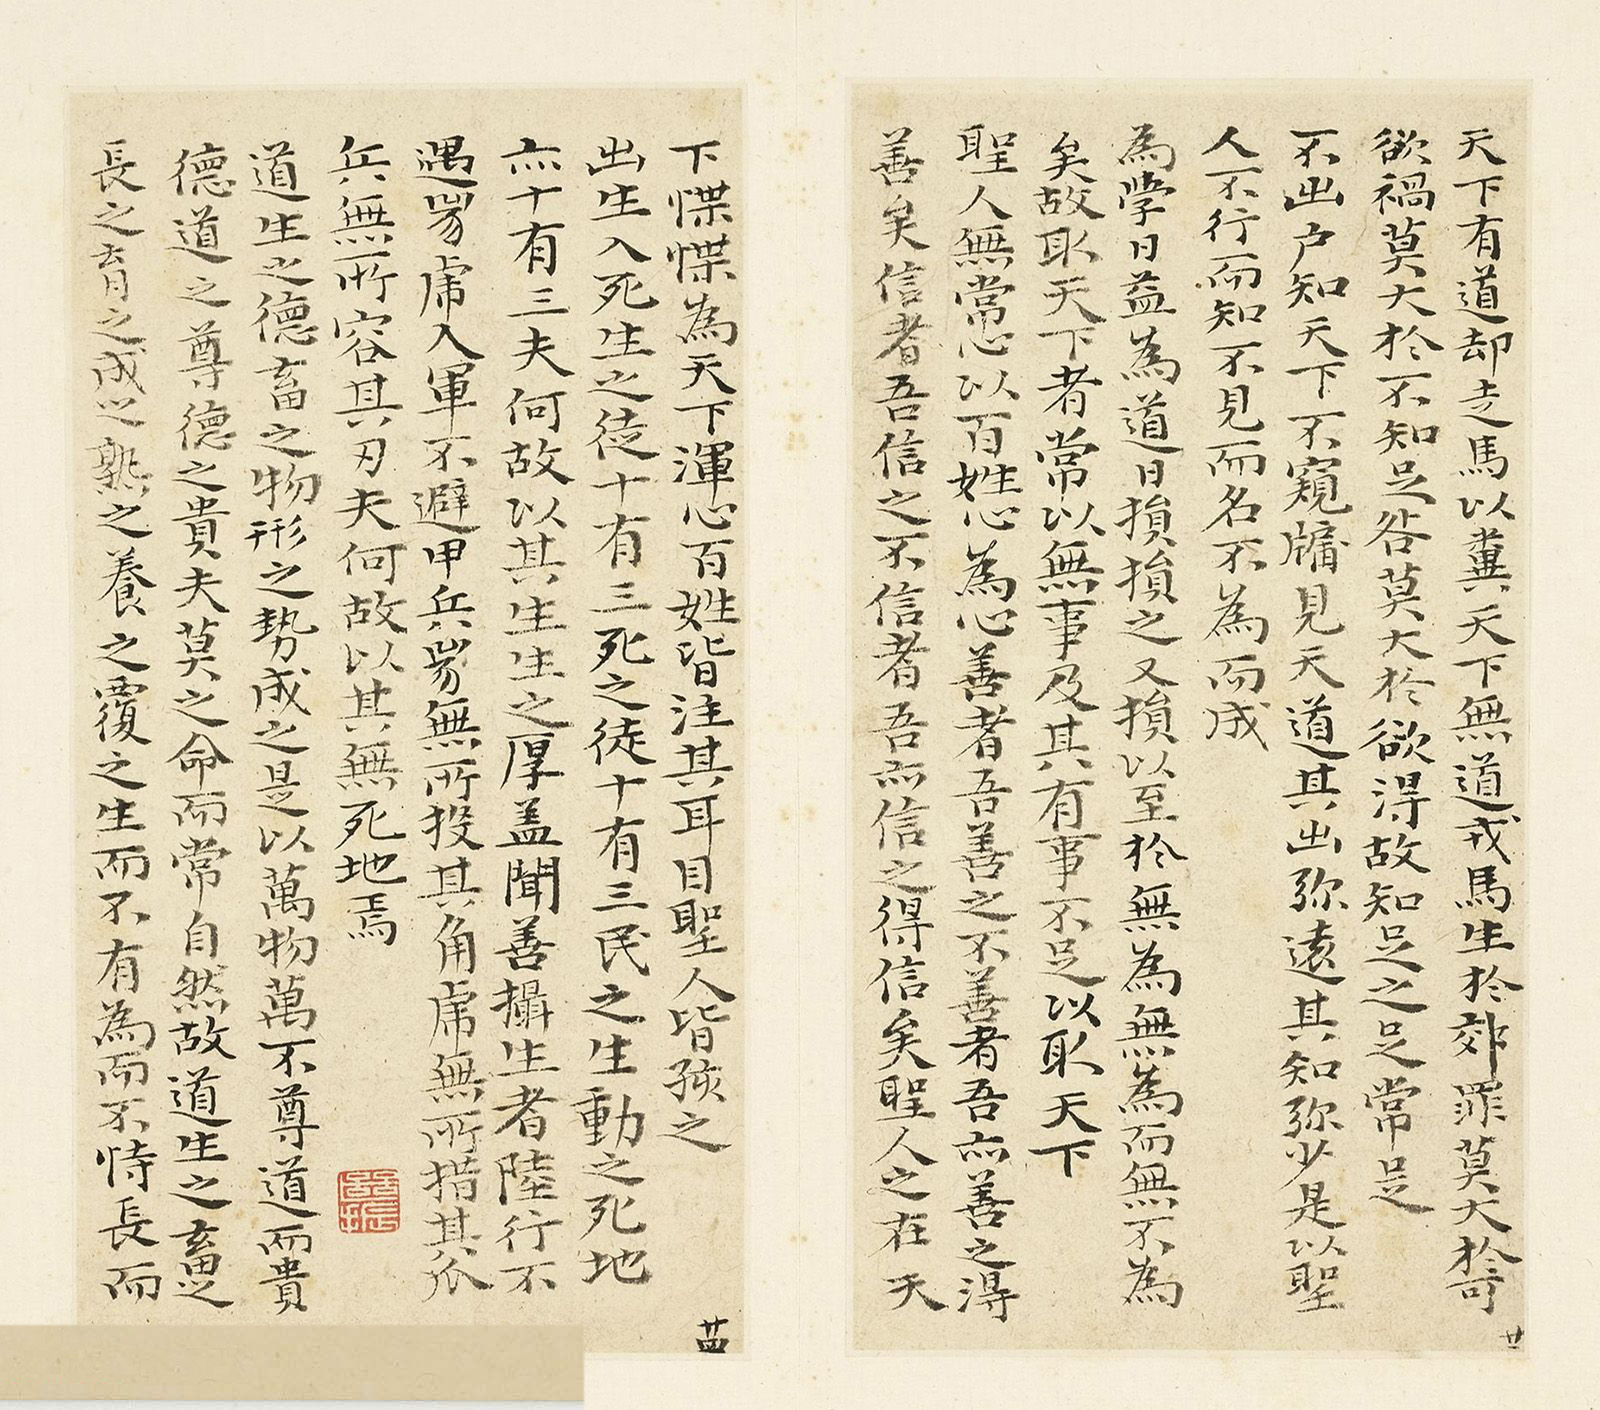 天下有道却走馬以糞天下無道戎馬生於郊罪莫大於可
欲禍莫大於不知足咎莫大於欲得故知足之足常足
不出户知天下不窺牖見天道其出弥遠其知弥少是以聖
人不行而知不見而名不為而成
為學日益為道日損損之又損以至於無為無為而無不為
矣故取天下者常以無事及其有事不足以取天下
聖人無常心以百姓心為心善者吾善之不善者吾亦善之得
善矣信者吾信之不信者吾亦信之得信矣聖人之在天
廿
下惵惵為天下渾心百姓皆注其耳目聖人皆孩之
出生入死生之徒十有三死之徒十有三民之生動之死地
亦十有三夫何故以其生生之厚盖聞善攝生者陸行不
遇兕虎入軍不避甲兵兕無所投其角虎無所措其爪
兵無所容其刃夫何故以其無死地焉
道生之德畜之物形之勢成之是以萬物萬不尊道而貴
德道之尊德之貴夫莫之命而常自然故道生之畜之
長之育之成之熟之養之覆之生而不有為而不恃長而
廿四